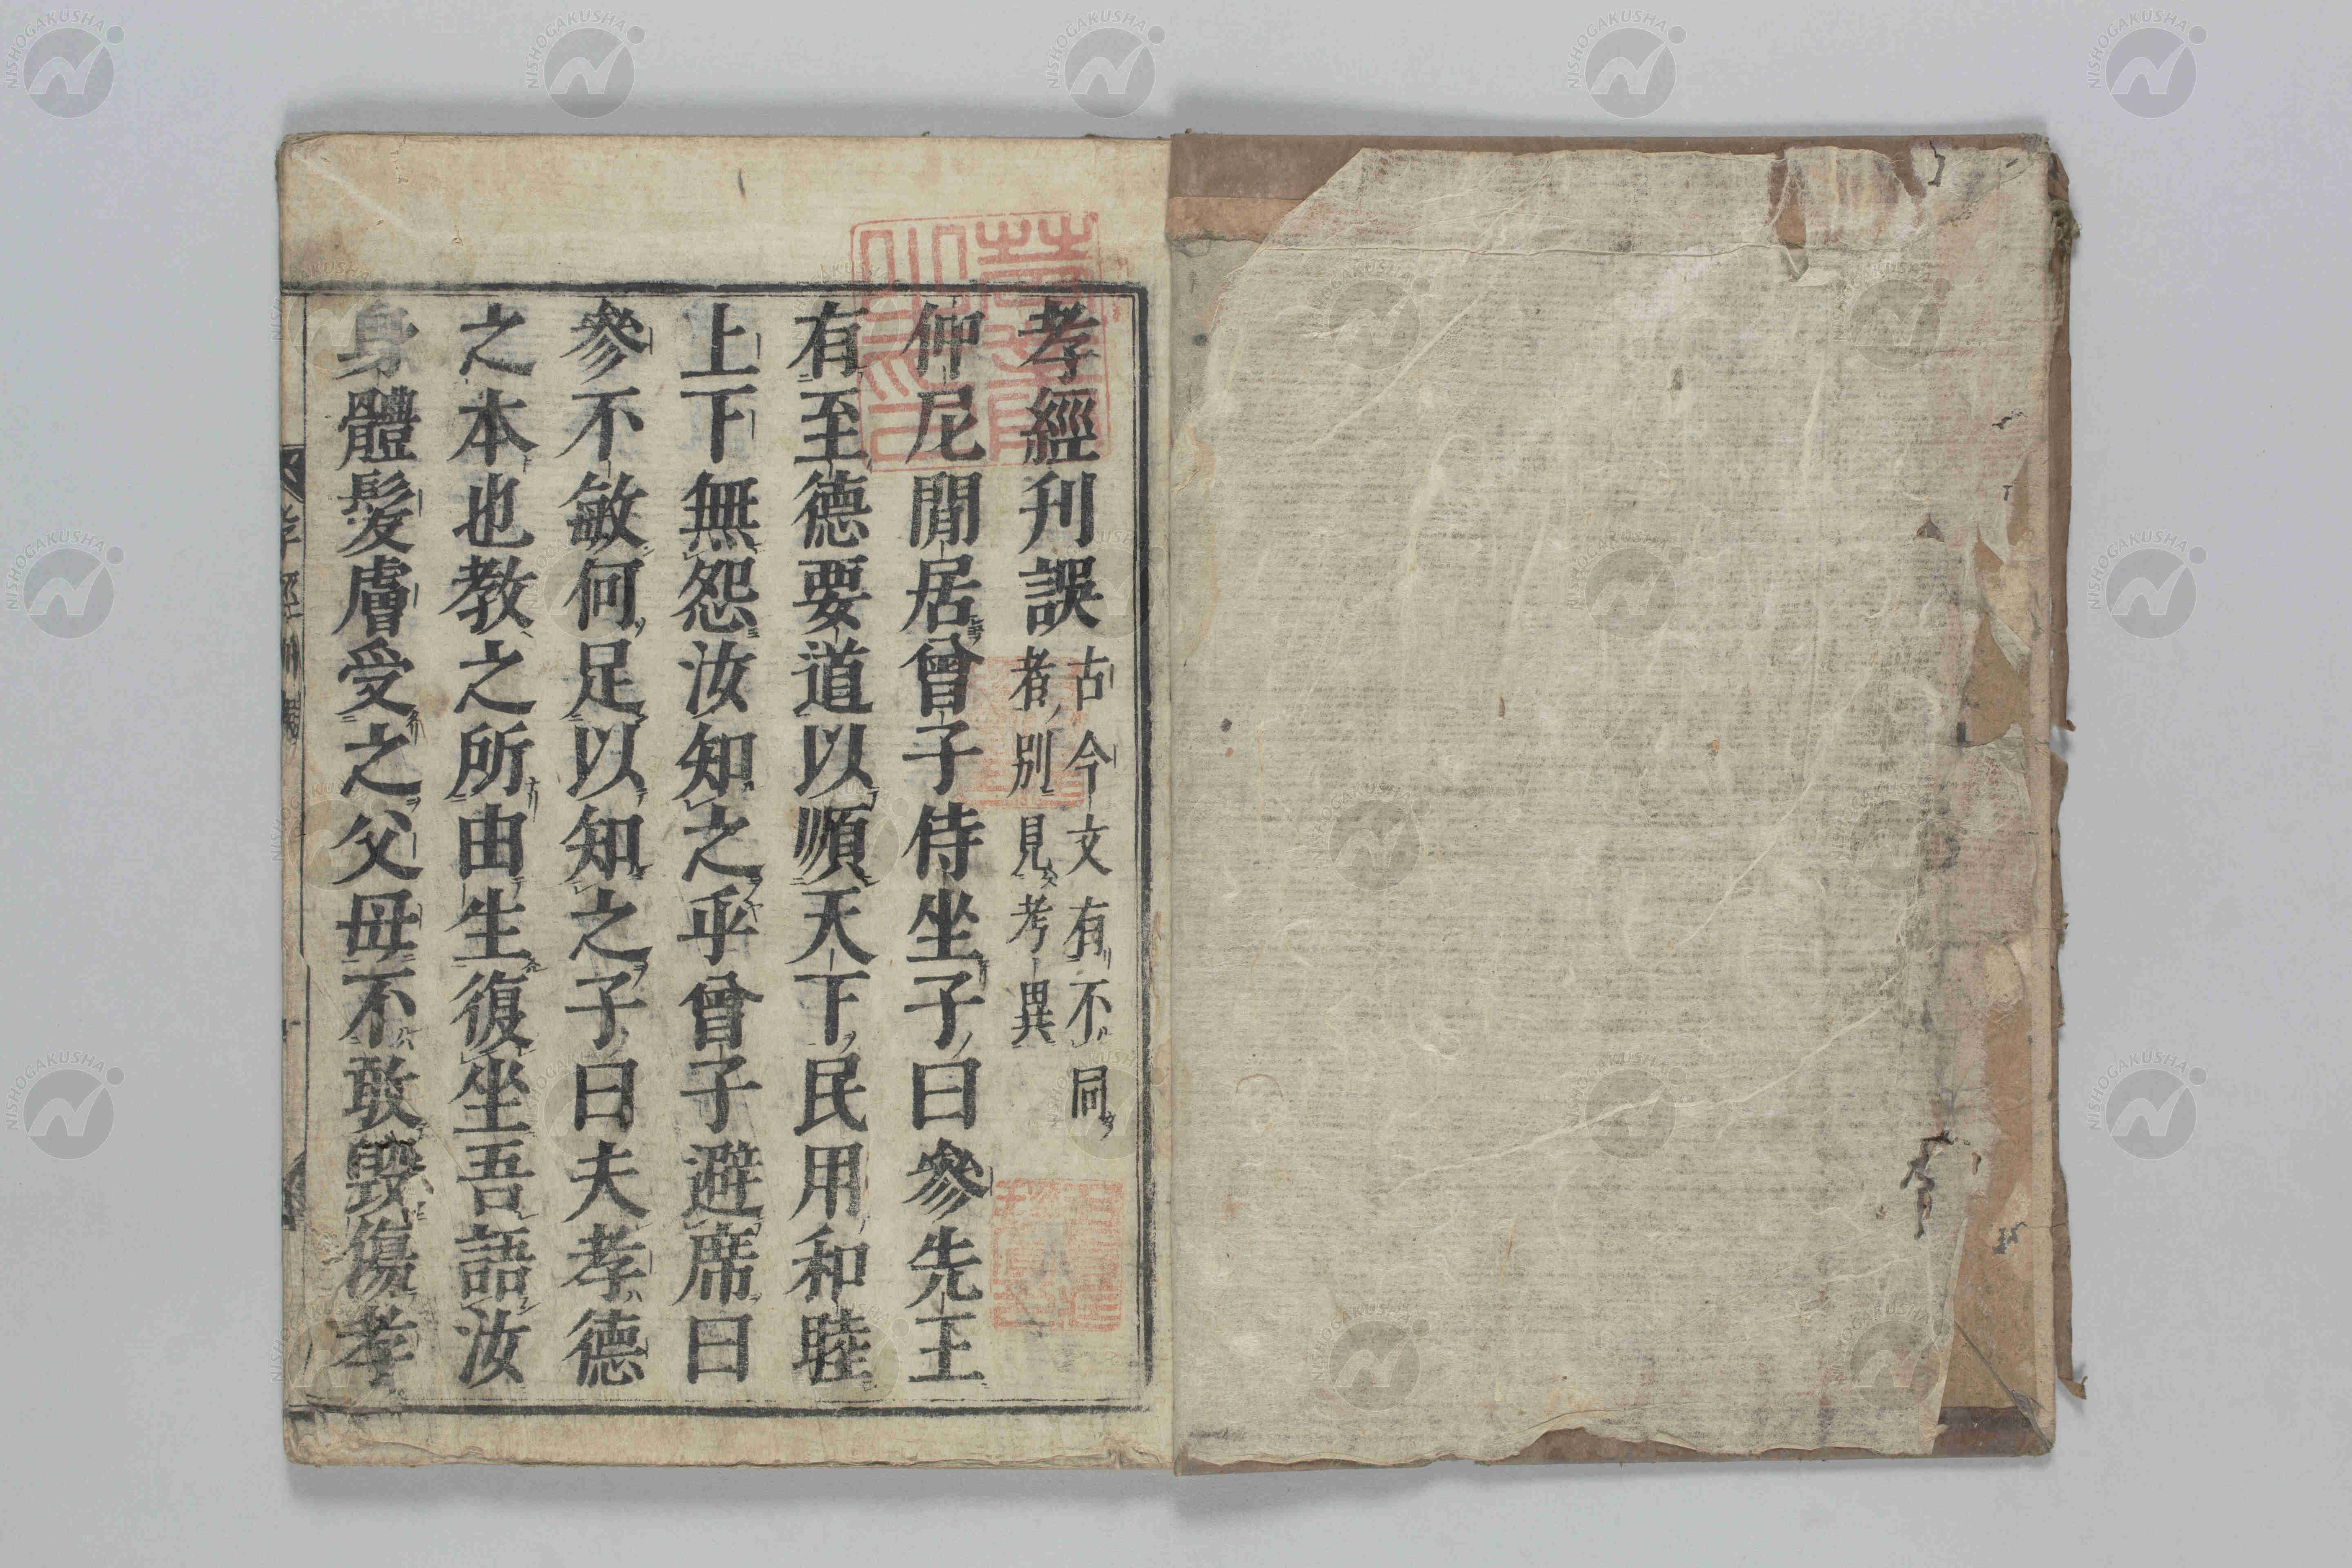 孝經刋誤 古今文有不同 者別見考異
仲尼閒居曾子侍坐子曰參先王
有至德要道以順天下民用和睦
上下無怨汝知之乎曾子避席曰
參不敏何足以知之子曰夫孝德
之本也教之所由生復坐吾語汝
身體髮膚受之父母不敢毀傷孝
NISHOGAKUSHA